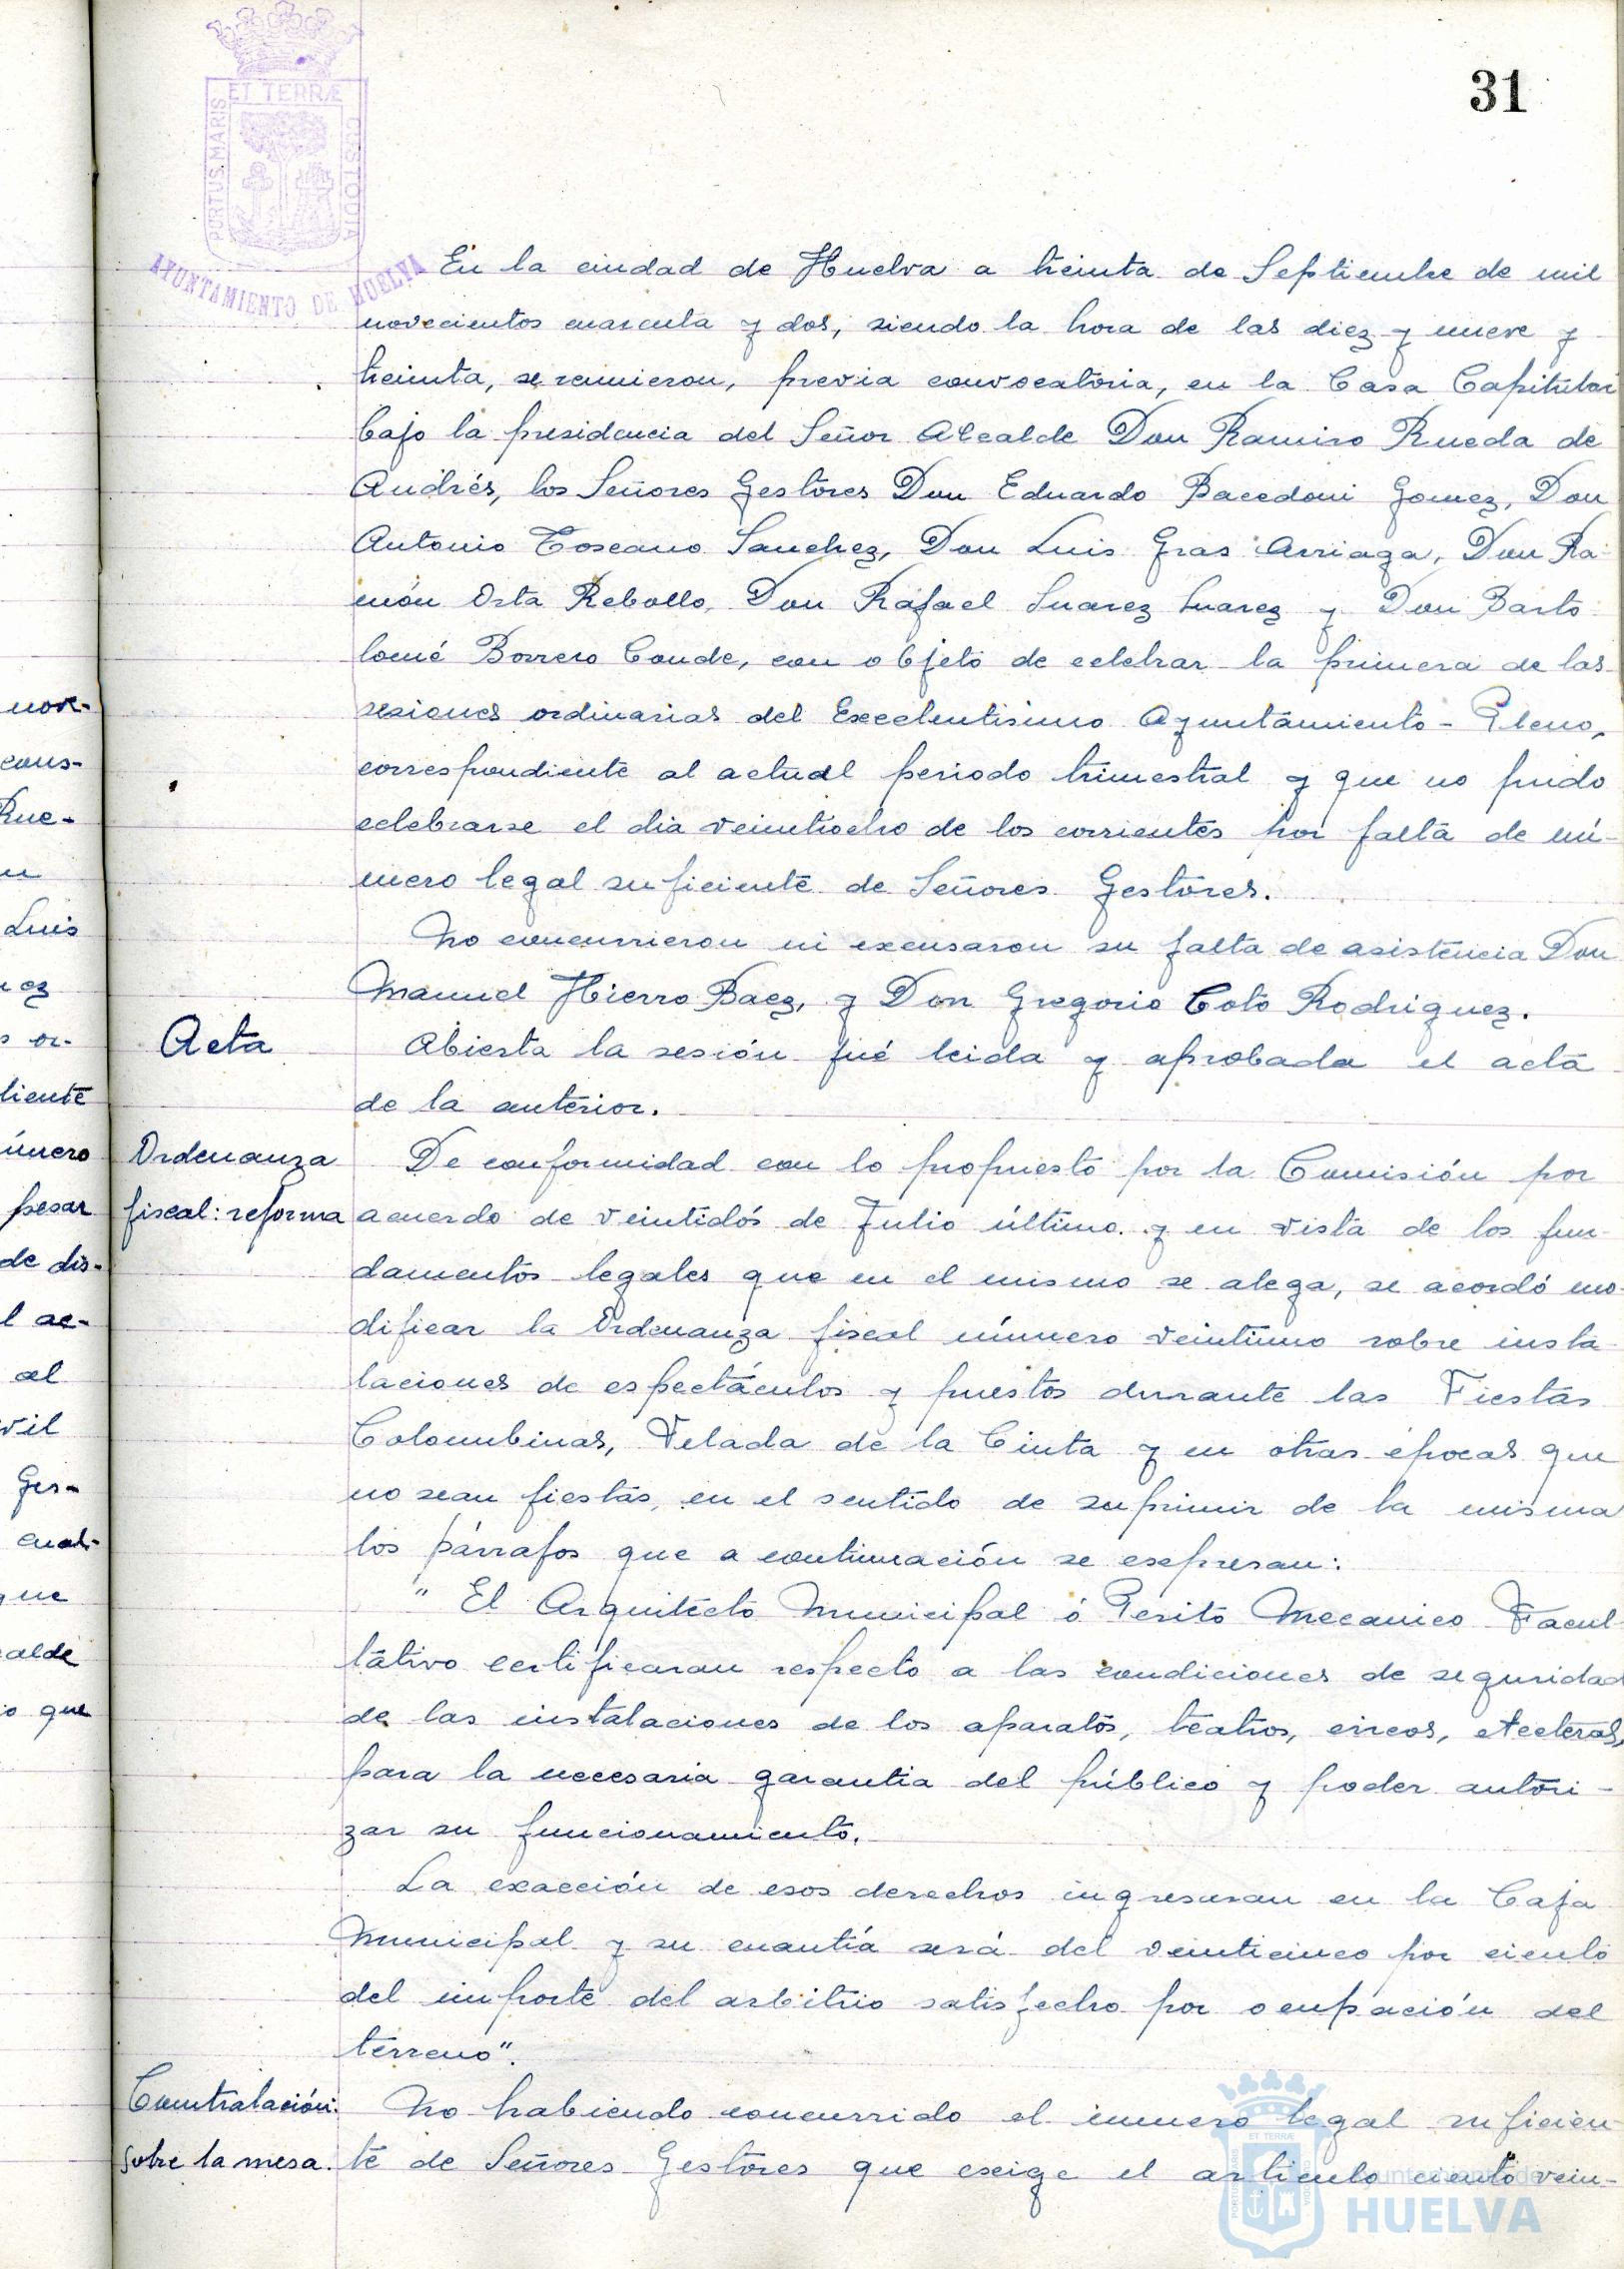 31
PORTUS MARIS ET TERRÆ CUSTODIA
AYUNTAMIENTO DE HUELVA
En la ciudad de Huelva a treinta de Septiembre de mil
novecientos cuarenta y dos, siendo la hora de las diez y nueve y
treinta, se reunieron, previa convocatoria, en la Casa Capitular
bajo la presidencia del Señor Alcalde Don Ramiro Rueda de
Andrés, los Señores Gestores Don Eduardo Bacedoni Gomez, Don
Antonio Toscano Sanchez, Don Luis Gras Arriaga, Don Ra-
món Orta Rebollo, Don Rafael Suarez Suarez y Don Barto
lomé Borrero Conde, con objeto de celebrar la primera de las
sesiones ordinarias del Excelentisimo Ayuntamiento-Pleno,
correspondiente al actual periodo trimestral y que no pudo
celebrarse el dia veintiocho de los corrientes por falta de nú-
mero legal suficiente de Señores Gestores.
No concurrieron ni excusaron su falta de asistencia Don
Manuel Hierro Baez, y Don Gregorio Coto Rodriguez.
Acta
Abierta la sesión fué leida y aprobada el acta
de la anterior.
Ordenanza
fiscal: reforma
De conformidad con lo propuesto por la Comisión por
acuerdo de veintidós de Julio último y en vista de los fun-
damentos legales que en el mismo se alega, se acordó mo-
dificar la Ordenanza fiscal número veintiuno sobre insta-
laciones de espectáculos y puestos durante las Fiestas
Colombinas, Velada de la Cinta y en otras épocas que
no sean fiestas, en el sentido de suprimir de la misma
los párrafos que a continuación se expresan:
" El Arquitecto Municipal ó Perito Mecanico Facul-
tativo certificaran respecto a las condiciones de seguridad
de las instalaciones de los aparatos, teatros, circos, etceteras,
para la necesaria garantia del público y poder autori-
zar su funcionamiento.
La exacción de esos derechos ingresaran en la Caja
Municipal y su cuantía será del veinticinco por ciento
del importe del arbitrio satisfecho por ocupación del
terreno".
Contratación:
sobre la mesa.
No habiendo concurrido el número legal suficien-
te de Señores Gestores que exige el articulo ciento vein-
nove-
cons-
Rue-
Luis
ez
s or-
diente
úmero
pesar
de dis-
l ac-
al
vil
Ges-
cual-
que
calde
o que
Ayuntamiento de
HUELVA